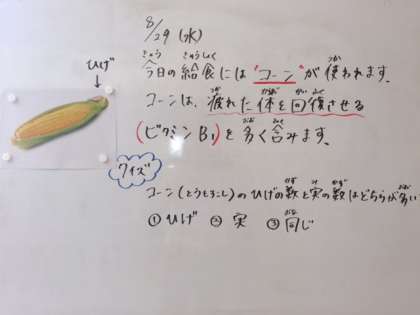 8/29 (水)
ひげ
今日の給食には"コーン"が使われます。
コーンは、疲れた体を回復させる
(ビタミンB1)を多く含みます。
クイズ
コーン(とうもろこし)のひげの数と実の数はどちらが多い
①ひげ ②実 ③同じ